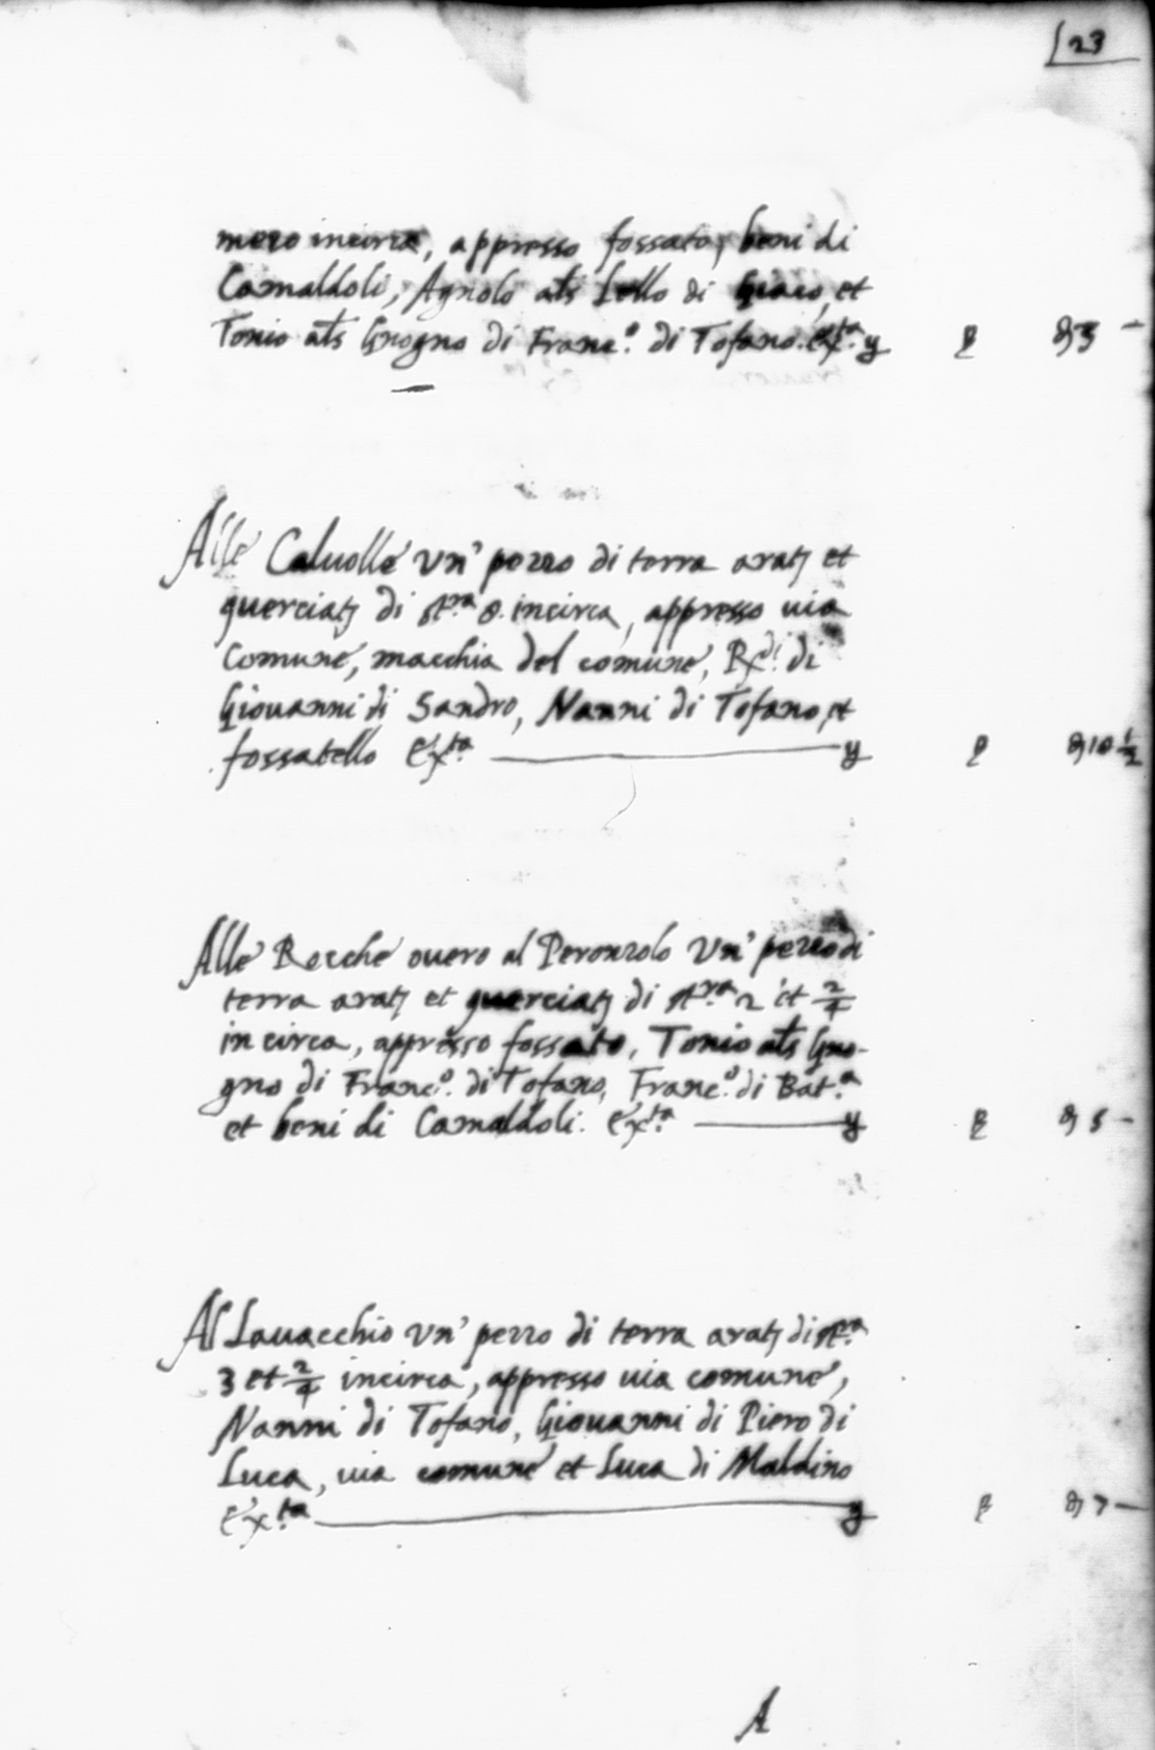 23
mezo incirca, appresso fossato, beni di
Camaldoli, Agnolo als Lello di Giaco, et
Tonio als Gnogno di Franc.º di Tofano. &x.ta
Alle Caluolle un' pezzo di terra arat. et
querciat. di st.ra 8. incirca, appresso uia
comune, macchia del comune, Rx.di di
Giouanni di Sandro, Nanni di Tofano, et
fossatello &x.ta 10 1/2
Alle Rocche ouero al Peronzolo un' pezzo di
terra arat. et querciat. di st.ra 2 et 2/4
in circa, appresso fossato, Tonio als Gno-
gno di Franc.º di Tofano, Franc.º di Bat.a
et beni di Camaldoli. &x.ta 5 —
Al Lauacchio un' pezzo di terra arat. di st.ra
3 et 2/4 incirca, appresso uia comune,
Nanni di Tofano, Giouanni di Piero di
Luca, uia comune et Luca di Maldino
&x.ta 7 —
A